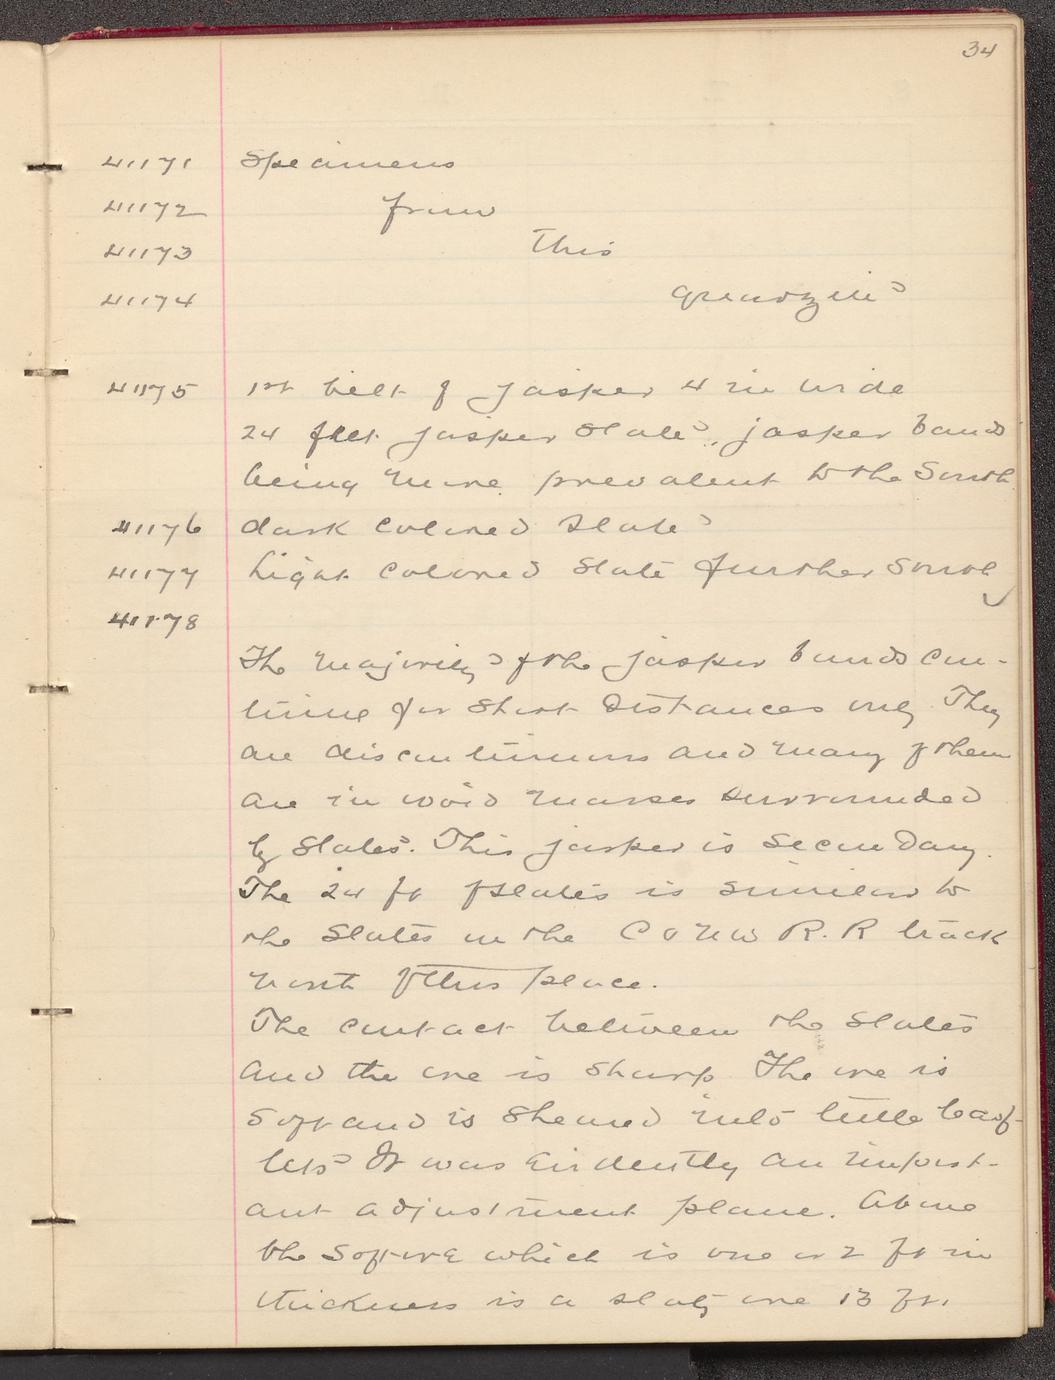 34
41171 Specimens
41172 from
41173 this
41174 quartzite
41175 1st belt of jasper 4 in wide
24 feet jasper slate, jasper bands
being more prevalent to the South
41176 dark colored slate
41177 Light colored slate further South
41178
The majority of the jasper bands con-
tinue for short distances only. They
are discontinuous and many of them
are in ovoid masses surrounded
by slates. This jasper is secondary.
The 24 ft of slates is similar to
the slates on the C & N W R. R track
north of this place.
The contact between the slates
and the ore is sharp The ore is
soft and is sheared into little leaf-
lets It was evidently an import-
ant adjustment plane. Above
the soft ore which is one or 2 ft in
thickness is a slaty ore 13 ft.